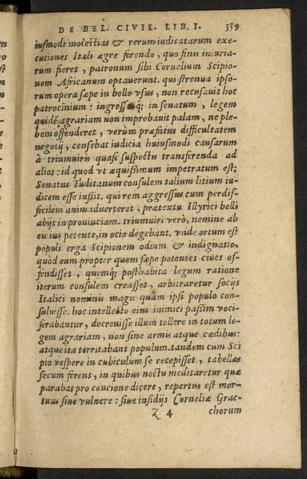 DE BEL. CIVIL. LIB. I. 359
iusmodi molestias & rerum iudicatarum exe-
cutiones Itali ægre ferendo, quo finis iniuria-
rum fieret, patronum sibi Cornelium Scipio-
nem Africanum optauerunt. qui strenua ipso-
rum opera sæpe in bello vsus, non recusauit hoc
patrocinium: ingressusq; in senatum, legem
quidē agrariam non improbauit palam, ne ple-
bem offenderet, verum præfatus difficultatem
negotij, censebat iudicia huiusmodi causarum
à triumuiris quasi suspectis transferenda ad
alios: id quod vt æquissimum impetratum est;
Senatus Tuditanum consulem talium litium iu-
dicem esse iussit. qui rem aggressus cum perdif-
ficilem animaduerteret, prætextu Illyrici belli
abijt in prouinciam. triumuiri verò, nemine ab
eis ius petente, in ocio degebant. vnde ortum est
populi erga Scipionem odium & indignatio,
quòd eum propter quem sæpe potentes ciues of-
fendisset, quemq; posthabita legum ratione
iterum consulem creasset, arbitraretur socijs
Italici nominis magis quàm ipsi populo con-
suluisse. hoc intellecto eius inimici passim voci-
ferabantur, decreuisse illum tollere in totum le-
gem agrariam, non sine armis atque cædibus:
atque ita territabant populum. tandem cum Sci
pio vespere in cubiculum se recepisset, tabellas
secum ferens, in quibus noctu meditaretur quæ
parabat pro concione dicere, repertus est mor-
tuus siue vulnere: siue insidijs Corneliæ Grac-
Z 4 chorum